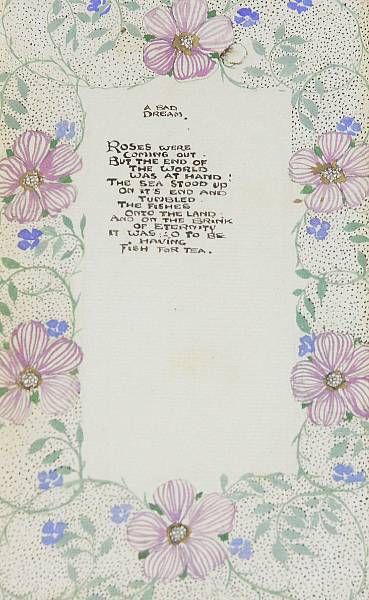 A SAD
DREAM.
ROSES WERE
COMING OUT
BUT THE END OF
THE WORLD
WAS AT HAND:
THE SEA STOOD UP
ON IT'S END AND
TUMBLED
THE FISHES
ONTO THE LAND
AND ON THE BRINK
OF ETERNITY
IT WAS SO TO BE
HAVING
FISH FOR TEA.